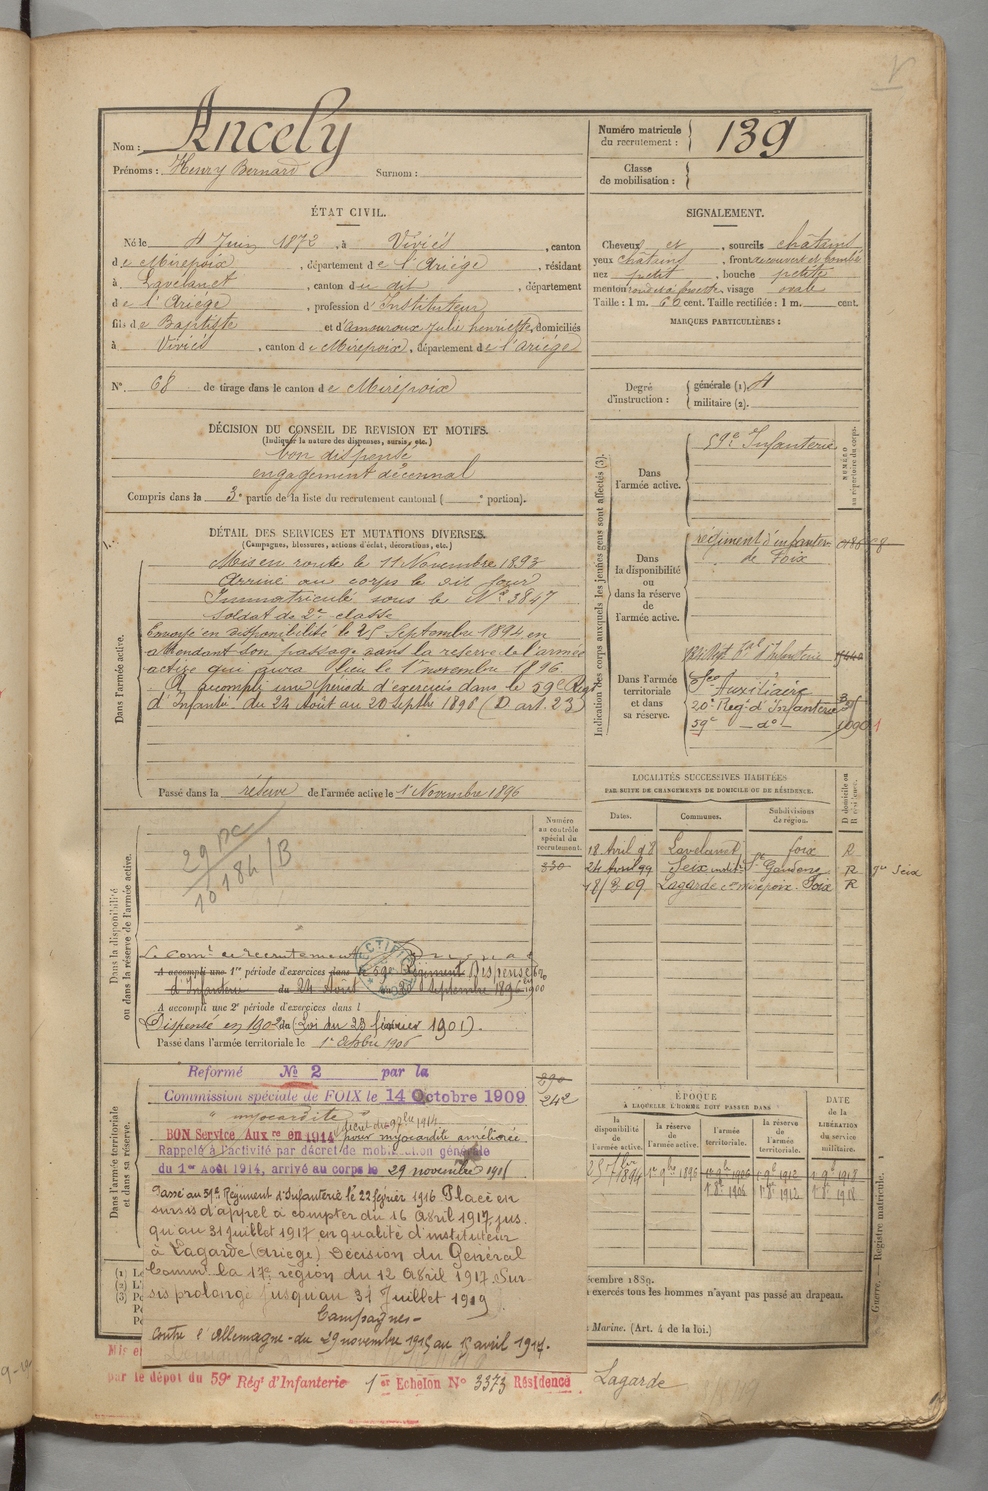 Nom : Ancely
Prénoms : Henry Bernard Surnom :
Numéro matricule du recrutement : 139
Classe de mobilisation :
ÉTAT CIVIL.
Né le 4 Juin 1872, à Viviès, canton
de Mirepoix, département de l'Ariège, résidant
à Lavelanet, canton du dit, département
de l'Ariège, profession d'Instituteur
fils de Baptiste et d'Amouroux Julie henriette, domiciliés
à Viviès, canton de Mirepoix, département de l'Ariège
N° 68 de tirage dans le canton de Mirepoix
SIGNALEMENT.
Cheveux et, sourcils châtains
yeux châtains, front découvert et bombé
nez petit, bouche petite
menton rond et à fossette, visage ovale
Taille : 1 m. 66 cent. Taille rectifiée : 1 m. cent.
MARQUES PARTICULIÈRES :
Degré d'instruction : générale (1). 4
militaire (2).
DÉCISION DU CONSEIL DE REVISION ET MOTIFS.
(Indiquer la nature des dispenses, sursis, etc.)
bon dispensé
engagement décennal
Compris dans la 3e partie de la liste du recrutement cantonal ( e portion).
DÉTAIL DES SERVICES ET MUTATIONS DIVERSES.
(Campagnes, blessures, actions d'éclat, décorations, etc.)
Dans l'armée active.
Mis en route le 11 Novembre 1893
Arrivé au corps le dit jour
Immatriculé sous le N° 3847
Soldat de 2e classe
Envoyé en disponibilité le 25 Septembre 1894 en
attendant son passage dans la réserve de l'armée
active qui aura lieu le 1er novembre 1896
A accompli une période d'exercices dans le 59e Régt
d'Infantie du 24 Août au 20 Septbre 1896 (D. art. 23)
Passé dans la réserve de l'armée active le 1er Novembre 1896
Indication des corps auxquels les jeunes gens sont affectés (3).
NUMÉRO au répertoire du corps.
Dans l'armée active.
59e Infanterie
Dans la disponibilité ou dans la réserve de l'armée active.
régiment d'infanterie
de Foix
Dans l'armée territoriale et dans sa réserve.
Auxiliaire
20e Régt d'Infanterie
59e —do—
LOCALITÉS SUCCESSIVES HABITÉES
PAR SUITE DE CHANGEMENTS DE DOMICILE OU DE RÉSIDENCE.
Dates. Communes. Subdivisions de région. D domicile ou R résidence.
18 Avril 98 Lavelanet foix R
24 Avril 99 Seix St Gaudens R
18/3 09 Lagarde con Mirepoix Foix R
Dans la disponibilité ou dans la réserve de l'armée active.
Numéro au contrôle spécial du recrutement.
330
A accompli une 1re période d'exercices dans le 59e Régiment
d'Infanterie du 24 Août au 20 septembre 1896
Dispensé en 1900
A accompli une 2e période d'exercices dans l
Dispensé en 1902 du (Loi du 23 février 1901).
Passé dans l'armée territoriale le 1er 8bre 1906
Dans l'armée territoriale et dans sa réserve.
Reformé No 2 par la
Commission spéciale de FOIX le 14 Octobre 1909
" myocardite "
290
242
BON Service Auxre en 1914 pour myocardite améliorée
Rappelé à l'activité par décret de mobilisation générale
du 1er Août 1914, arrivé au corps le 29 novembre 1915
Passé au 59e Régiment d'Infanterie le 22 février 1916 Placé en
sursis d'appel à compter du 16 Avril 1917 jus-
qu'au 31 juillet 1917 en qualité d'instituteur
à Lagarde (Ariège) Décision du Général
Commt la 17e région du 12 Avril 1917 Sur-
sis prolongé jusqu'au 31 Juillet 1919
Campagnes -
Contre l'Allemagne - du 29 novembre 1915 au 15 avril 1917.
ÉPOQUE
À LAQUELLE L'HOMME DOIT PASSER DANS
la disponibilité de l'armée active. la réserve de l'armée active. l'armée territoriale. la réserve de l'armée territoriale. DATE de la LIBÉRATION du service militaire.
25 7bre 1894 1er 9bre 1896 1er 9bre 1906 1er 9bre 1912 1er 9bre 1918
1er 8bre 1906 1er 8bre 1912 1er 8bre 1918
décembre 1889.
exercés tous les hommes n'ayant pas passé au drapeau.
Marine. (Art. 4 de la loi.)
Guerre. — Registre matricule.
par le dépôt du 59e Régt d'Infanterie 1er Echelon No 3373 Résidence Lagarde